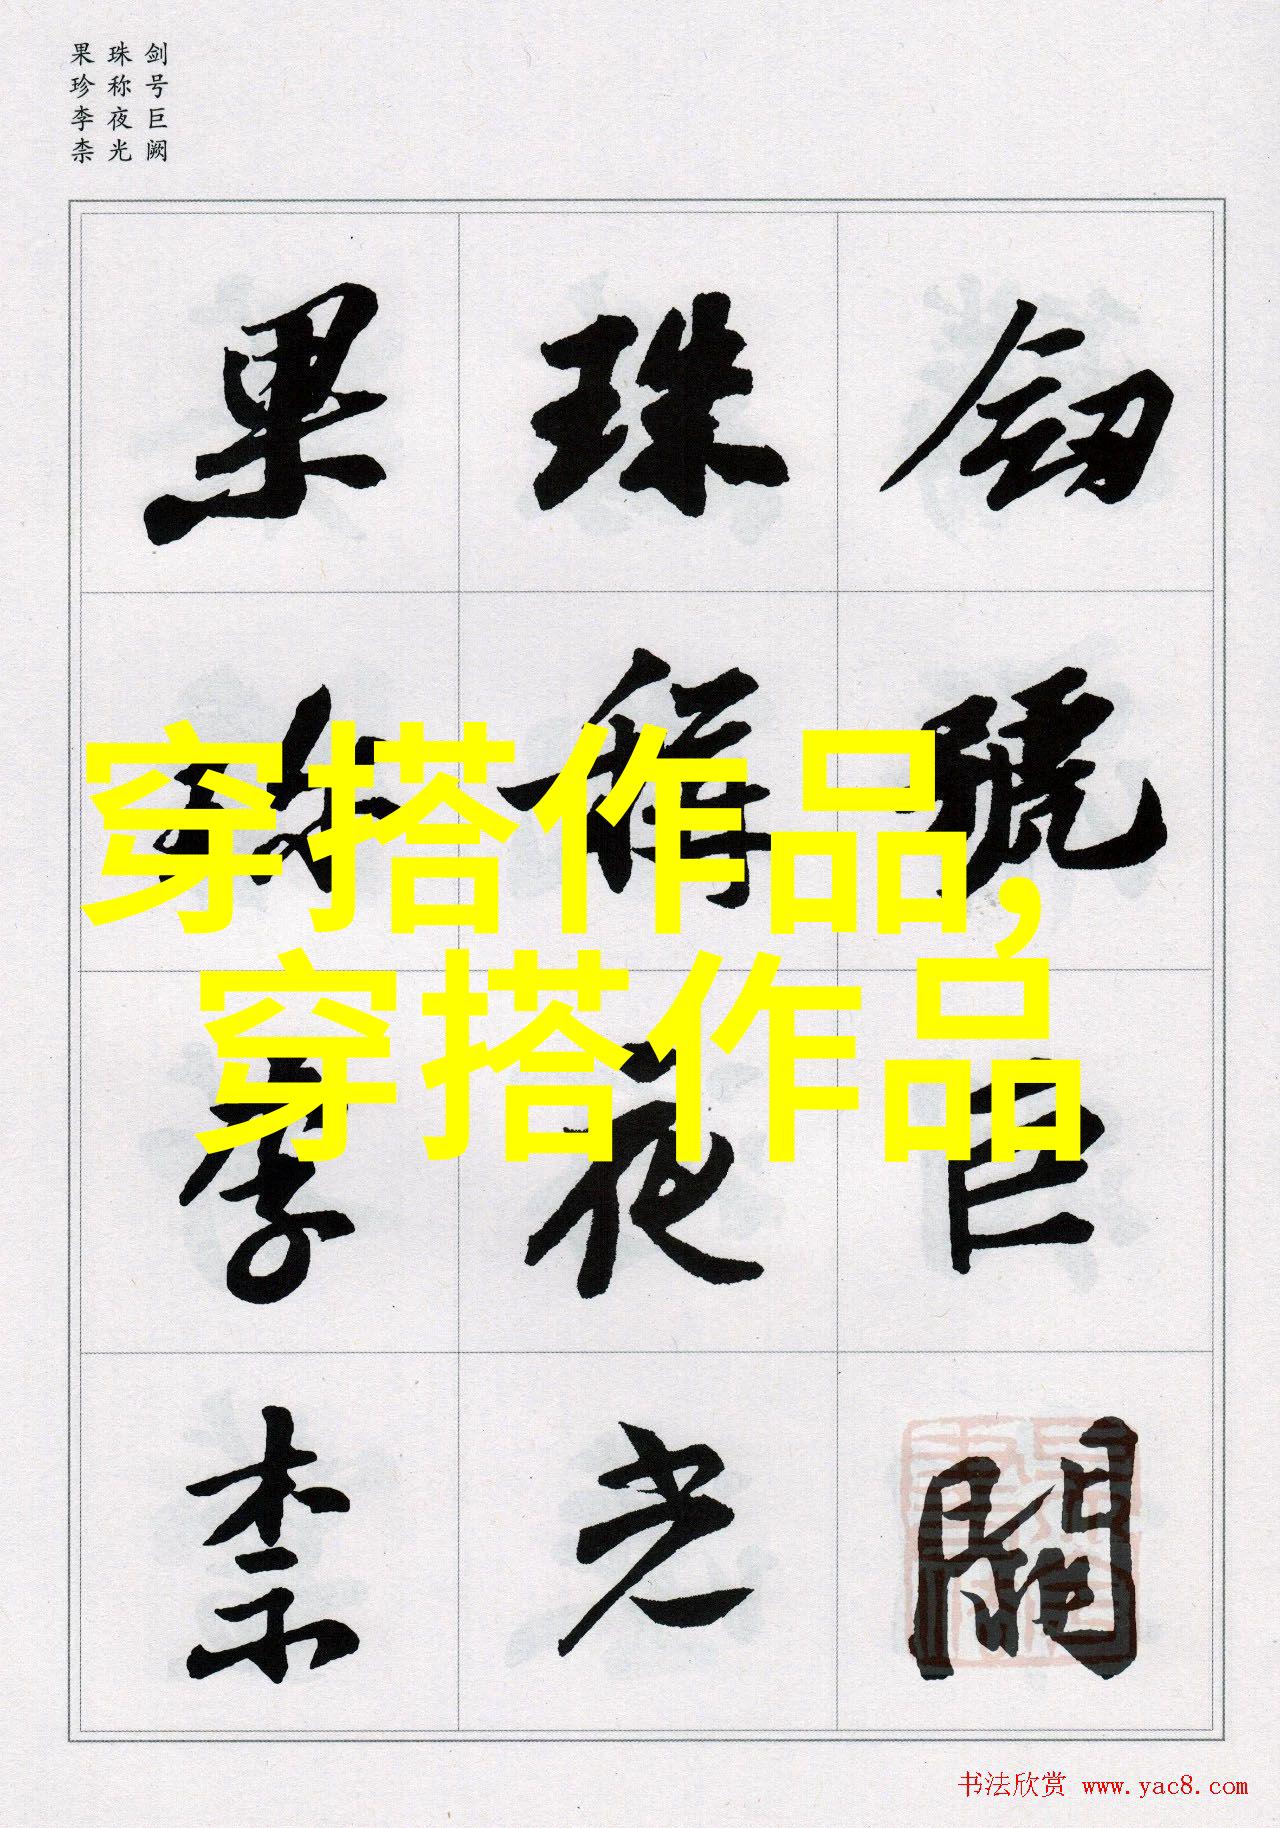 剑号巨阙
珠称夜光
果珍李柰
劍號巨闕
珠稱夜光
果珍李柰
穿搭作品,
穿搭作品
书法欣赏 www.yac8.com